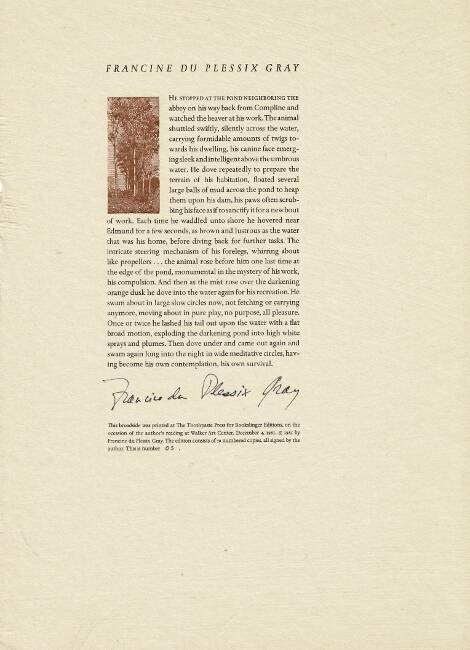 FRANCINE DU PLESSIX GRAY
HE STOPPED AT THE POND NEIGHBORING THE
abbey on his way back from Compline and
watched the beaver at his work. The animal
shuttled swiftly, silently across the water,
carrying formidable amounts of twigs to-
wards his dwelling, his canine face emerg-
ing sleek and intelligent above the umbrous
water. He dove repeatedly to prepare the
terrain of his habitation, floated several
large balls of mud across the pond to heap
them upon his dam, his paws often scrub-
bing his face as if to sanctify it for a new bout
of work. Each time he waddled unto shore he hovered near
Edmund for a few seconds, as brown and lustrous as the water
that was his home, before diving back for further tasks. The
intricate steering mechanism of his forelegs, whirring about
like propellers . . . the animal rose before him one last time at
the edge of the pond, monumental in the mystery of his work,
his compulsion. And then as the mist rose over the darkening
orange dusk he dove into the water again for his recreation. He
swam about in large slow circles now, not fetching or carrying
anymore, moving about in pure play, no purpose, all pleasure.
Once or twice he lashed his tail out upon the water with a flat
broad motion, exploding the darkening pond into high white
sprays and plumes. Then dove under and came out again and
swam again long into the night in wide meditative circles, hav-
ing become his own contemplation, his own survival.
Francine du Plessix Gray
This broadside was printed at The Toothpaste Press for Bookslinger Editions, on the
occasion of the author's reading at Walker Art Center, December 4, 1981. © 1981 by
Francine du Plessix Gray. The edition consists of numbered copies, all signed by the
author. This is number 05 .